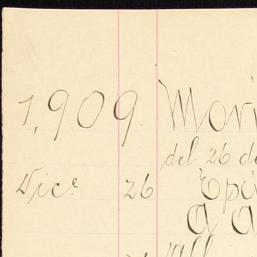 1,909
Movi
del 26 de
Dice. 26 Epi
a a
all